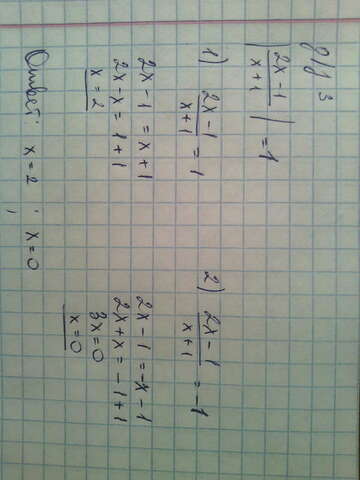 д/з 3
|2x-1/x+1| = 1
1) 2x-1/x+1 = 1
2x-1 = x+1
2x-x = 1+1
x = 2
2) 2x-1/x+1 = -1
2x-1 = -x-1
2x+x = -1+1
3x=0
x=0
Ответ: x=2 ; x=0